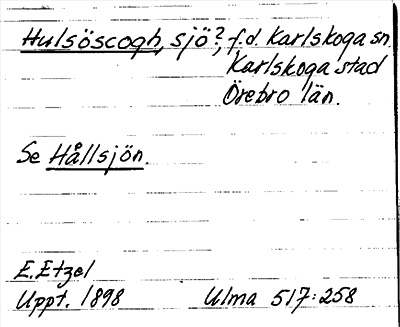 Hulsöscogh, sjö?, f.d. Karlskoga sn
Karlskoga stad
Örebro län.
Se Hållsjön.
E. Etzel
Uppt. 1898 Ulma 517:258